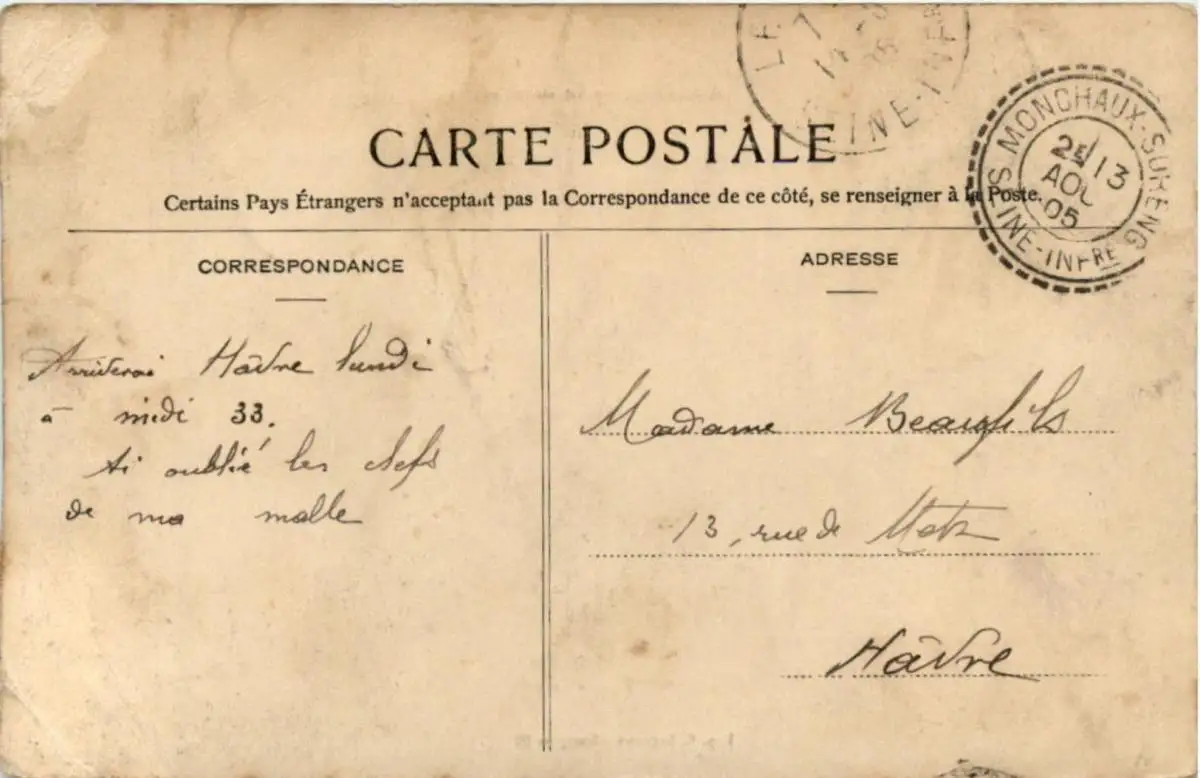 CARTE POSTALE
Certains Pays Étrangers n'acceptant pas la Correspondance de ce côté, se renseigner à la Poste.
CORRESPONDANCE
Arriverai Hâvre lundi
à midi 33.
Ai oublié les clefs
de ma malle
ADRESSE
Madame Beaufils
13, rue de Metz
Hâvre
MONCHAUX-SORENG
13
AOU
05
SEINE-INFRE
INE-INFR